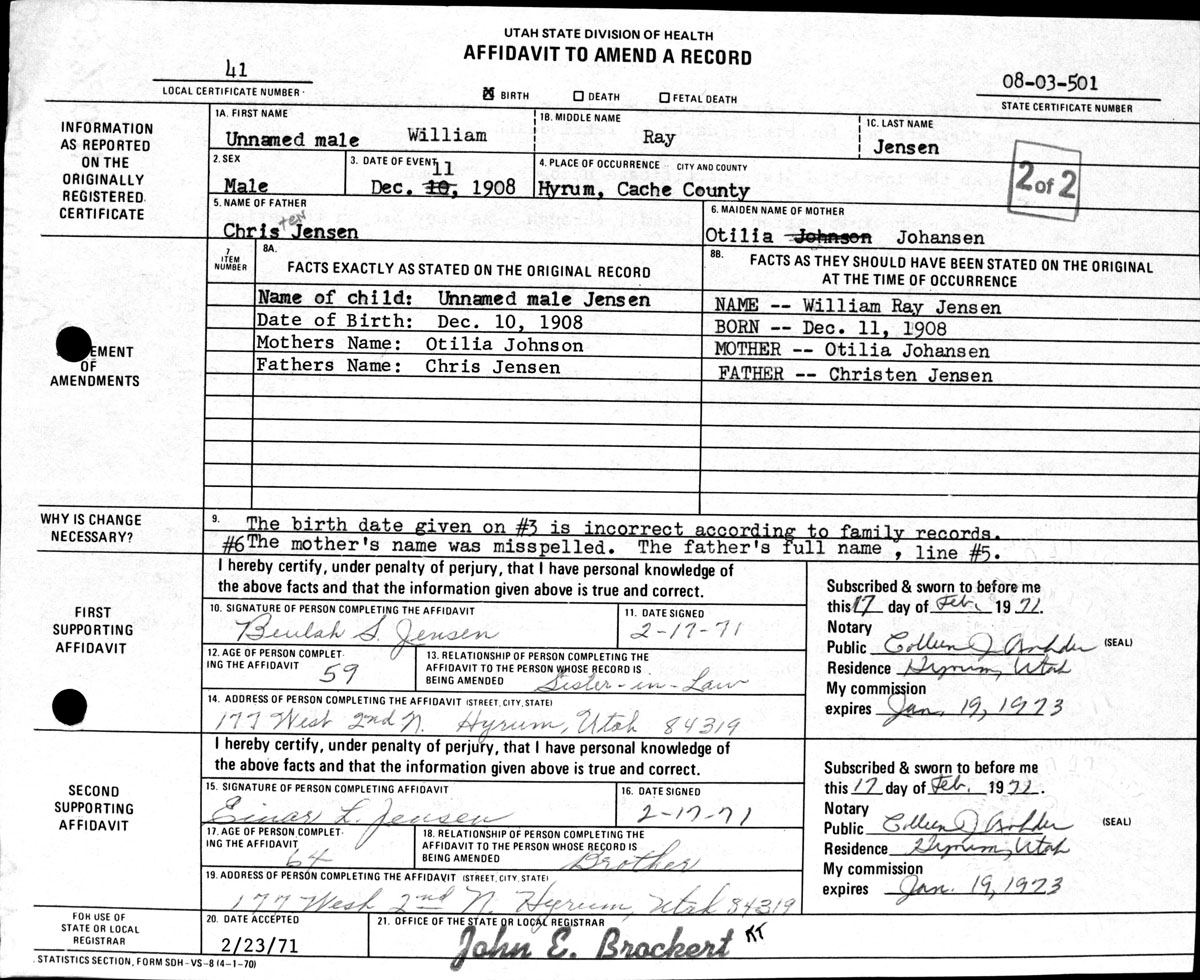 UTAH STATE DIVISION OF HEALTH
AFFIDAVIT TO AMEND A RECORD
41
LOCAL CERTIFICATE NUMBER
☒ BIRTH ☐ DEATH ☐ FETAL DEATH
08-03-501
STATE CERTIFICATE NUMBER
INFORMATION
AS REPORTED
ON THE
ORIGINALLY
REGISTERED
CERTIFICATE
1A. FIRST NAME
Unnamed male William
1B. MIDDLE NAME
Ray
1C. LAST NAME
Jensen
2. SEX
Male
3. DATE OF EVENT
11
Dec. 10, 1908
4. PLACE OF OCCURRENCE - CITY AND COUNTY
Hyrum, Cache County
2 of 2
5. NAME OF FATHER
Christen Jensen
6. MAIDEN NAME OF MOTHER
Otilia Johnson Johansen
STATEMENT
OF
AMENDMENTS
7
ITEM
NUMBER
8A.
FACTS EXACTLY AS STATED ON THE ORIGINAL RECORD
8B.
FACTS AS THEY SHOULD HAVE BEEN STATED ON THE ORIGINAL
AT THE TIME OF OCCURRENCE
Name of child: Unnamed male Jensen
NAME -- William Ray Jensen
Date of Birth: Dec. 10, 1908
BORN -- Dec. 11, 1908
Mothers Name: Otilia Johnson
MOTHER -- Otilia Johansen
Fathers Name: Chris Jensen
FATHER -- Christen Jensen
WHY IS CHANGE
NECESSARY?
9. The birth date given on #3 is incorrect according to family records.
#6 The mother's name was misspelled. The father's full name , line #5.
FIRST
SUPPORTING
AFFIDAVIT
I hereby certify, under penalty of perjury, that I have personal knowledge of
the above facts and that the information given above is true and correct.
10. SIGNATURE OF PERSON COMPLETING THE AFFIDAVIT
Beulah S. Jensen
11. DATE SIGNED
2-17-71
12. AGE OF PERSON COMPLET-
ING THE AFFIDAVIT
59
13. RELATIONSHIP OF PERSON COMPLETING THE
AFFIDAVIT TO THE PERSON WHOSE RECORD IS
BEING AMENDED Sister-in-Law
14. ADDRESS OF PERSON COMPLETING THE AFFIDAVIT (STREET, CITY, STATE)
177 West 2nd N. Hyrum, Utah 84319
Subscribed & sworn to before me
this 17 day of Feb, 1971.
Notary
Public Colleen J (SEAL)
Residence Hyrum, Utah
My commission
expires Jan. 19, 1973
SECOND
SUPPORTING
AFFIDAVIT
I hereby certify, under penalty of perjury, that I have personal knowledge of
the above facts and that the information given above is true and correct.
15. SIGNATURE OF PERSON COMPLETING AFFIDAVIT
Einar L. Jensen
16. DATE SIGNED
2-17-71
17. AGE OF PERSON COMPLET-
ING THE AFFIDAVIT
64
18. RELATIONSHIP OF PERSON COMPLETING THE
AFFIDAVIT TO THE PERSON WHOSE RECORD IS
BEING AMENDED Brother
19. ADDRESS OF PERSON COMPLETING THE AFFIDAVIT (STREET, CITY, STATE)
177 West 2nd N. Hyrum, Utah 84319
Subscribed & sworn to before me
this 17 day of Feb. 1971.
Notary
Public Colleen J (SEAL)
Residence Hyrum, Utah
My commission
expires Jan. 19, 1973
FOR USE OF
STATE OR LOCAL
REGISTRAR
20. DATE ACCEPTED
2/23/71
21. OFFICE OF THE STATE OR LOCAL REGISTRAR
John E. Brockert RT
STATISTICS SECTION, FORM SDH-VS-8 (4-1-70)